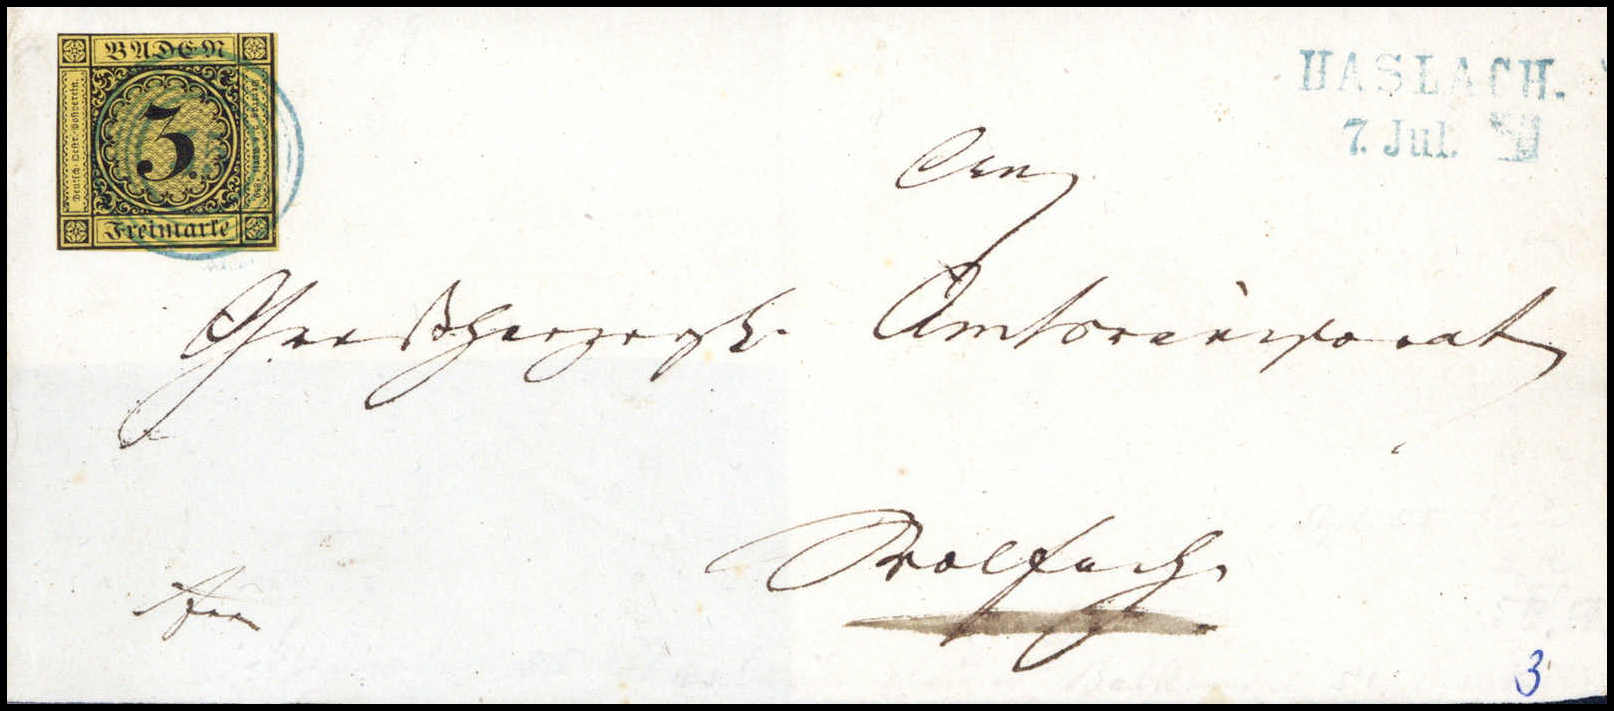 BADEN
Deutsch-Oestr. Postverein.
3.
Freimarke
HASLACH.
7. Jul.
Den
Großherzogl. Amtsrevisorat
Wolfach.
frei
3